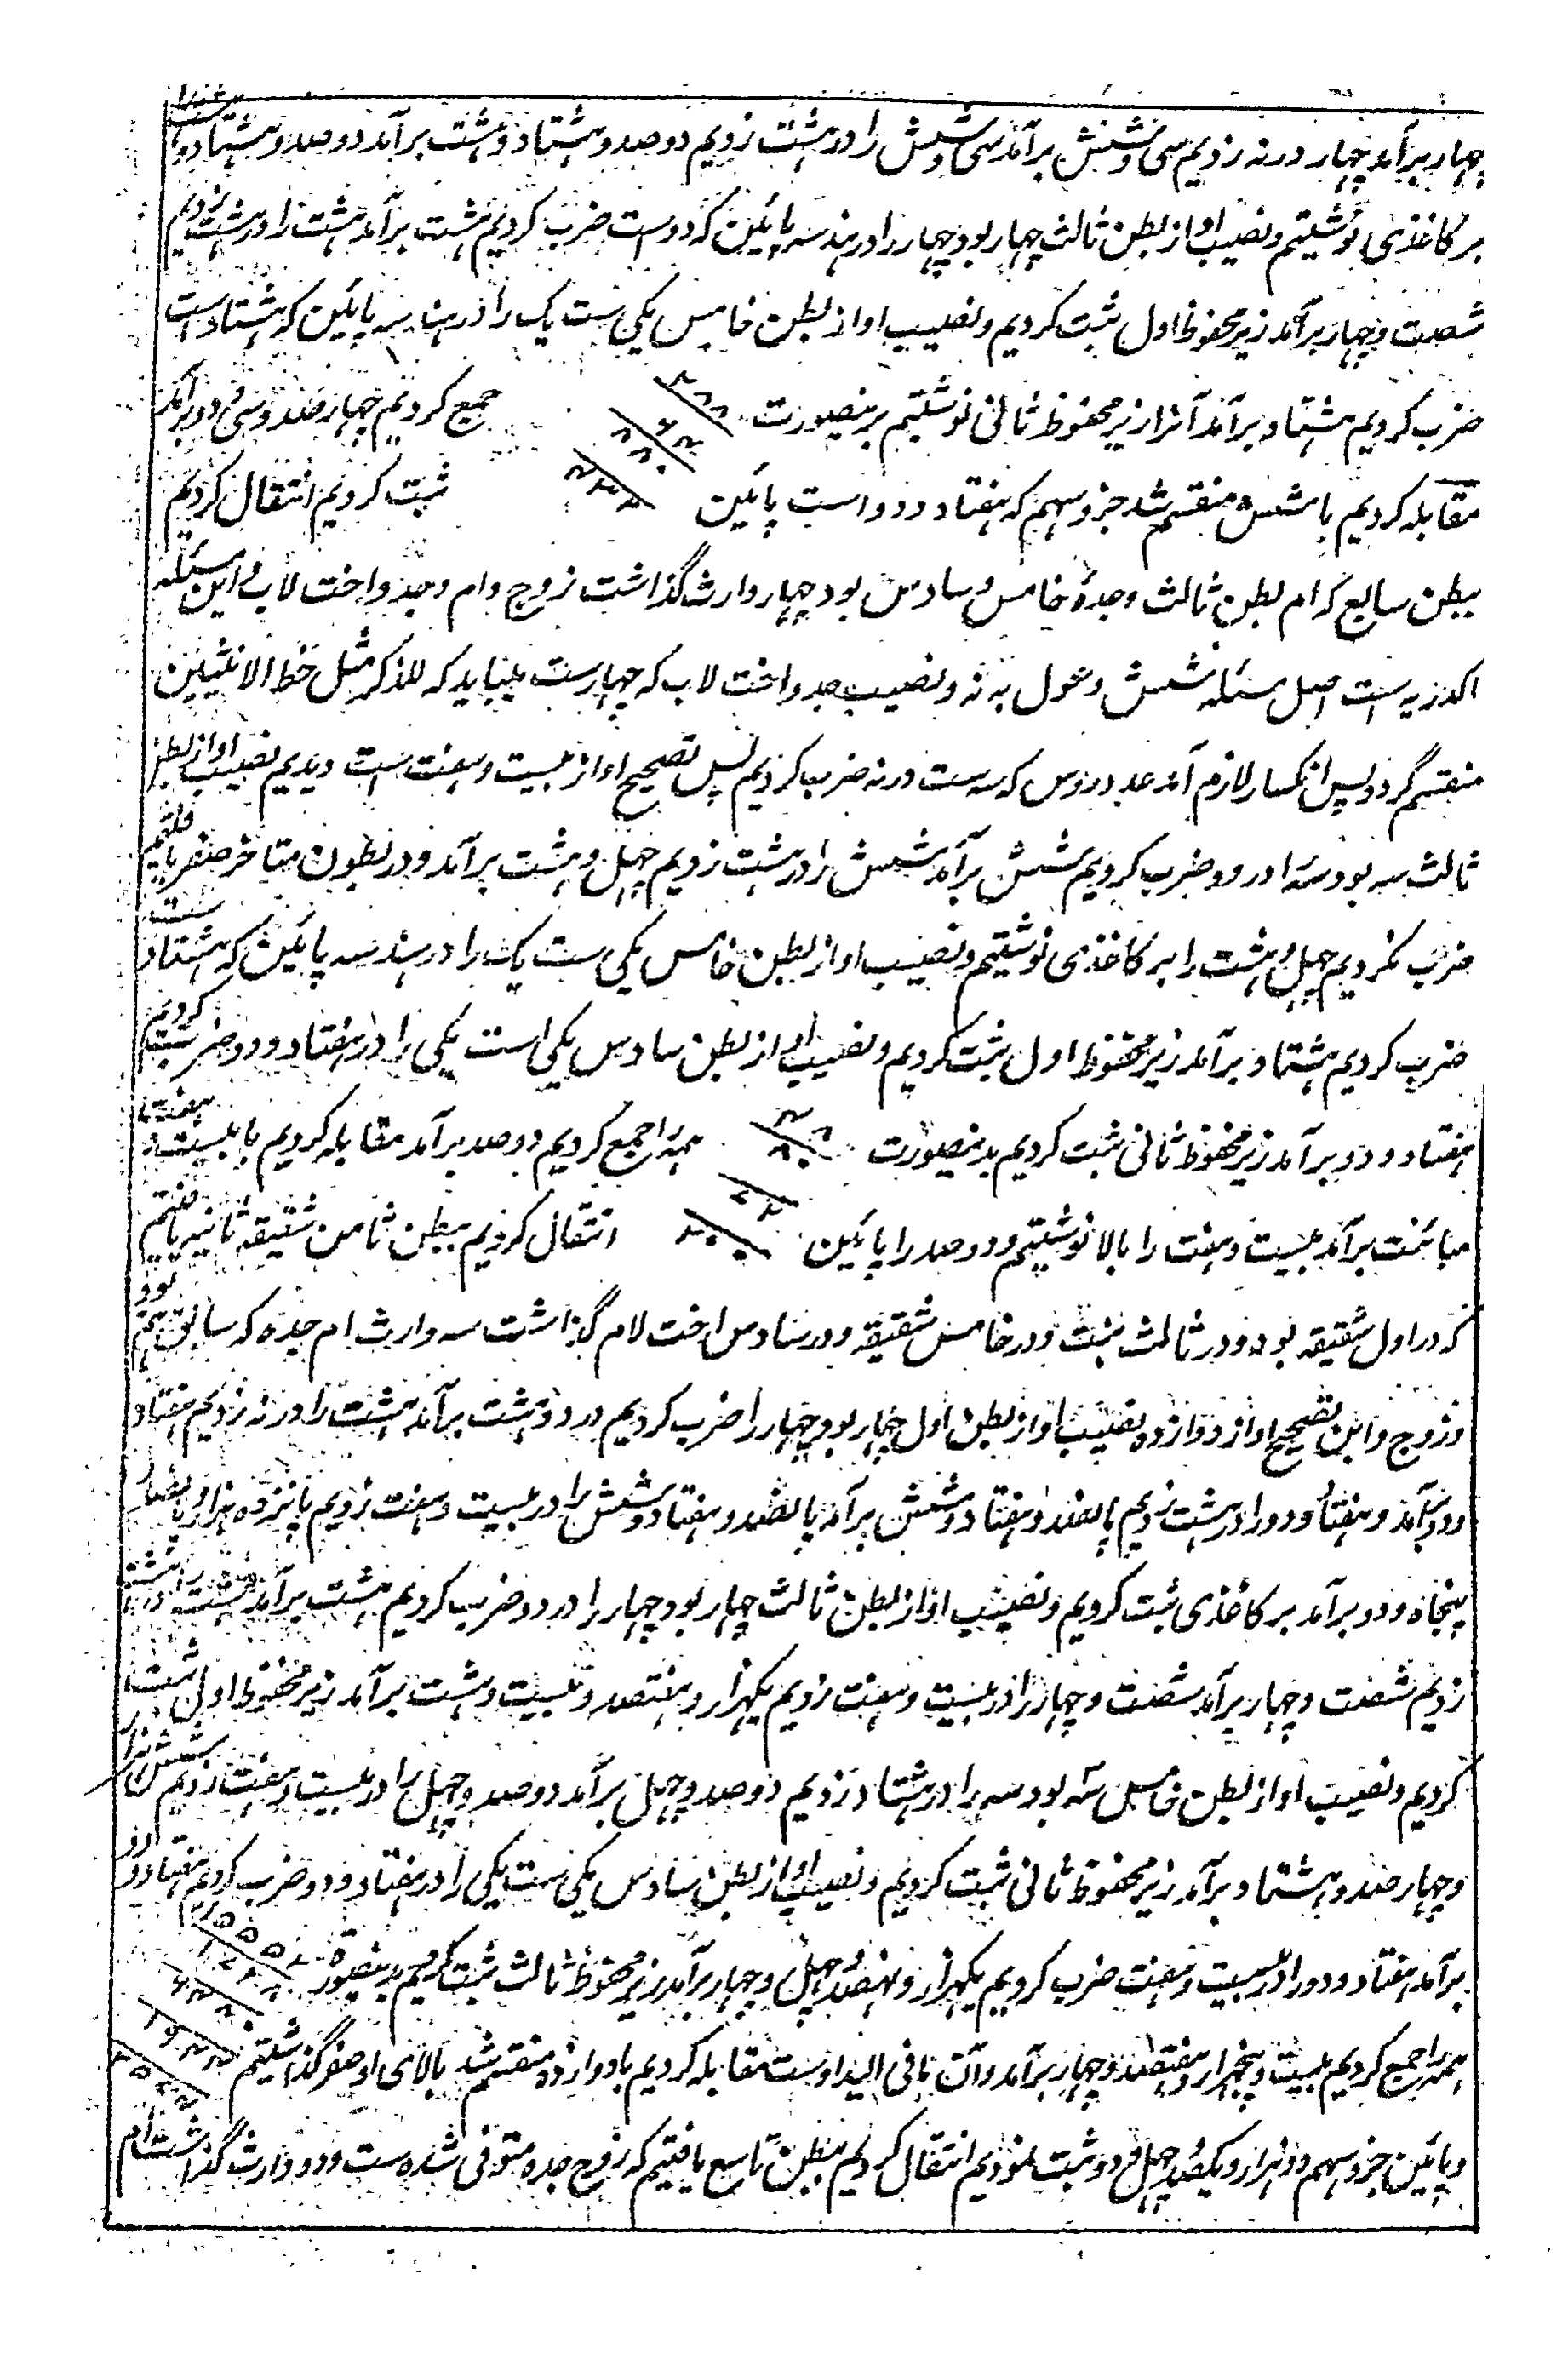 چهار برآمد چهار در نه زدیم سی و شش برآمد سی و شش را در هشت زدیم دو صد و هشتاد و هشت برآمد دو صد و هشتاد و هشت را
بر کاغذی نوشتیم و نصیب او از بطن ثالث چهار بود چهار را در هندسه پایین که دوست ضرب کردیم هشت برآمد هشت را در هشت زدیم
شصت و چهار برآمد زیر محفوظ اول ثبت کردیم و نصیب او از بطن خامس یکی ست یک را در هندسه پایین که هشتاد است
ضرب کردیم هشتاد برآمد آنرا زیر محفوظ ثانی نوشتیم برینصورت ۲۸۸ ۶۴ ۸۰ جمع کردیم چهار صد و سی و دو برآمد
مقابله کردیم با شش منقسم شد جزو سهم که هفتاد و دو است پایین ۴۳۲ ثبت کردیم انتقال کردیم
ببطن سابع که ام بطن ثالث و جدهٔ خامس و سادس بود چهار وارث گذاشت زوج و ام و جد و اخت لاب و این مسئله
اکدریه است اصل مسئله شش و عول به نه و نصیب جد و اخت لاب که چهارست میباید که للذکر مثل حظ الانثیین
منقسم گردد پس انکسار لازم آمد عدد روس که سه ست در نه ضرب کردیم پس تصحیح او از بیست و هفت ست دیدیم نصیب او از بطن
ثالث سه بود سه را در دو ضرب کردیم شش برآمد شش را در هشت زدیم چهل و هشت برآمد و در بطون متاخر صفر یافتیم
ضرب نکردیم چهل و هشت را بر کاغذی نوشتیم و نصیب او از بطن خامس یکی ست یک را در هندسه پایین که هشتاد ست
ضرب کردیم هشتاد برآمد زیر محفوظ اول ثبت کردیم و نصیب او از بطن سادس یکی است یکی را در هفتاد و دو ضرب کردیم
هفتاد و دو برآمد زیر محفوظ ثانی ثبت کردیم بدینصورت ۴۸ ۸۰ ۷۲ همه را جمع کردیم دو صد برآمد مقابله کردیم با بیست و هفت
مباینت برآمد بیست و هفت را بالا نوشتیم و دو صد را پایین ۲۰۰ انتقال کردیم ببطن ثامن شقیقه ثانیه یافتیم
که در اول شقیقه بود و در ثالث بنت و در خامس شقیقه و در سادس اخت لام گذاشت سه وارث ام جده که سابق هم بود
و زوج و ابن تصحیح او از دوازده نصیب او از بطن اول چهار بود چهار را ضرب کردیم در دو هشت برآمد هشت را در نه زدیم هفتاد
و دو برآمد و هفتاد و دو را در هشت زدیم پانصد و هفتاد و شش برآمد پانصد و هفتاد و شش را در بیست و هفت زدیم پانزده هزار و پانصد و
پنجاه و دو برآمد بر کاغذی ثبت کردیم و نصیب او از بطن ثالث چهار بود چهار را در دو ضرب کردیم هشت برآمد هشت را در هشت
زدیم شصت و چهار برآمد شصت و چهار را در بیست و هفت زدیم یکهزار و هفتصد و بیست و هشت برآمد زیر محفوظ اول ثبت
کردیم و نصیب او از بطن خامس سه بود سه را در هشتاد زدیم دو صد و چهل برآمد دو صد و چهل را در بیست و هفت زدیم شش هزار
و چهار صد و هشتاد برآمد زیر محفوظ ثانی ثبت کردیم و نصیب او از بطن سادس یکی ست یکی را در هفتاد و دو ضرب کردیم هفتاد و دو
برآمد هفتاد و دو را در بیست و هفت ضرب کردیم یکهزار و نهصد و چهل و چهار برآمد زیر محفوظ ثالث ثبت کردیم بدینصورة ۱۵۵۵۲ ۱۷۲۸ ۶۴۸۰ ۱۹۴۴
همه را جمع کردیم بیست و پنجهزار و هفتصد و چهار برآمد و آن مافی الید اوست مقابله کردیم با دوازده منقسم شد بالای او صفر گذاشتیم ۲۵۷۰۴
و پایین جزو سهم دو هزار و یکصد و چهل و دو ثبت نمودیم انتقال کردیم ببطن تاسع یافتیم که زوج جده متوفی شده ست و دو وارث گذاشت ام